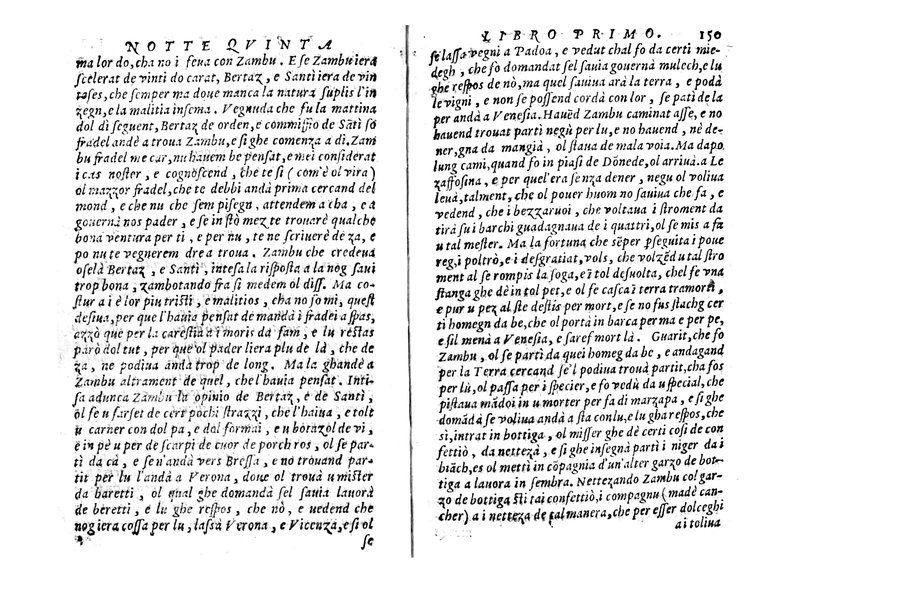 NOTTE QVINTA
ma lor do, cha no i feua con Zambu. E se Zambu iera
scelerat de vinti do carat, Bertaz, e Santì iera de vin
toses, che semper ma doue manca la natura suplis l'in
zegn, e la malitia insema. Vegnuda che fu la mattina
dol dì seguent, Bertaz de orden, e commissio de Sãtì so
fradel andè a troua Zambu, e si ghe comenza a dì. Zam
bu fradel me car, nu hauem be pensat, e mei considerat
i cas noster, e cognoscend, che te si (com'è ol vira)
ol mazzor fradel, che te debbi andà prima cercand del
mond, e che nu che sem pisegn, attendem a cha, e a
gouernà nos pader, e se in stò mez te trouarè qualche
bona ventura per ti, e per nu, te ne scriuerè de za, e
po nu te vegnerem drea troua. Zambu che credeua
oselà Bertaz, e Santì, intesa la risposta a la nog saui
trop bona, zambotando fra si medem ol diss. Ma co-
stur a i è lor piu tristi, e malitios, cha no so mi, quest
desiua, per que l'hauia pensat de mandà i fradei a spas,
azzò que per la carestia i moris da fam, e lu restas
parò dol tut, per que ol pader liera plu de là, che de
za, ne podiua andà trop de long. Ma la ghandè a
Zambu altrament de quel, che l'hauia pensat. Inti-
sa adunca Zambu la opinio de Bertaz, e de Santì,
ol fe u farset de cert pochi strazzi, che l'haiua, e tolt
u carner con dol pa, e dol formai, e u botazol de vi,
e in pè u per de scarpi de cuor de porch ros, ol se par-
tì da cà, e se n'andà vers Bressa, e no trouand par-
tit per lu l'andà a Verona, doue ol trouà u mister
da baretti, ol qual ghe domandà sel sauia lauorà
de beretti, e lu ghe respos, che nò, e uedend che
nog iera cossa per lu, lassà Verona, e Vicenza, e si ol
se
LIBRO PRIMO. 150
se lassa vegni a Padoa, e vedut chal fo da certi mie-
degh, che fo domandat sel sauia gouernà mulech, e lu
ghe respos de nò, ma quel sauiua arà la terra, e podà
le vigni, e non se possend cordà con lor, se patì de la
per andà a Venesia. Hauẽd Zambu caminat asse, e no
hauend trouat partì negù per lu, e no hauend, nè de-
ner, gna da mangià, ol staua de mala voia. Ma dapo
lung cami, quand fo in piasi de Dõnede, ol arriuà a Le
zaffosina, e per quel'era senza dener, negu ol voliua
leuà, talment, che ol pouer huom no sauiua che fa, e
vedend, che i bezzaruoi, che voltaua i stroment da
tirà su i barchi guadagnaua de i quattri, ol se mis a fa
u tal mester. Ma la fortuna che sẽper pseguita i poue
reg, i poltrò, e i desgratiat, vols, che volzẽd u tal stro
ment al se rompis la soga, e ĩ tol desuolta, chel fe vna
stanga ghe dè in tol pet, e ol fe casca ĩ terra tramortì,
e pur u pez al ste destis per mort, e se no fus stachg cer
ti homegn da be, che ol portà in barca per ma e per pe,
e sil menà a Venesia, e saref mort là. Guarit, che fo
Zambu, ol se partì da quei homeg da be, e andagand
per la Terra cercand se'l podiua trouà partit, cha fos
per lù, ol passa per i specier, e fo vedù da u special, che
pistaua mãdoi in u morter per fa di marzapa, e si ghe
domãdà se voliua andà a sta con lu, e lu gha respos, che
sì, intrat in bottiga, ol misser ghe dè certi cosi de con
fettiò, da nettezà, e si ghe insegnà partì i niger da i
biãch, es ol mettì in cõpagnia d'un alter garzo de bot-
tiga a lauora in sembra. Nettezando Zambu col gar-
zo de bottiga sti tai confettiò, i compagnu (madè can-
cher) a i netteza de tal manera, che per esser dolceghi
ai toliua